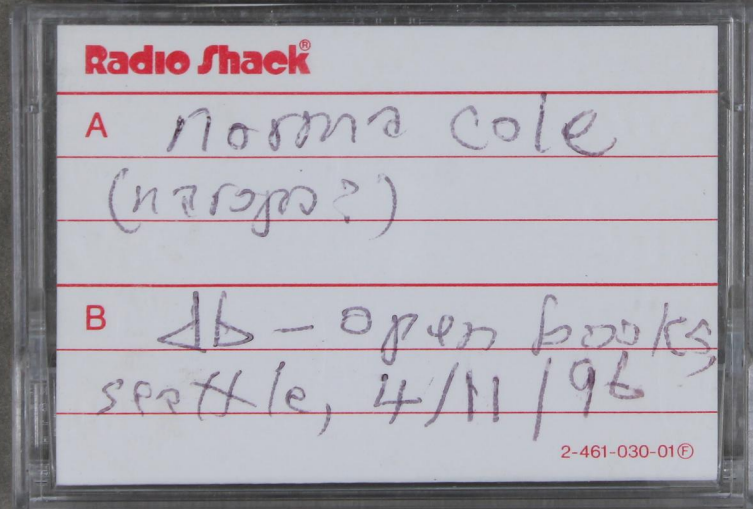 Radio Shack®
A norma cole
(naropa?)
B db - open books,
seattle, 4/11/96
2-461-030-01Ⓕ